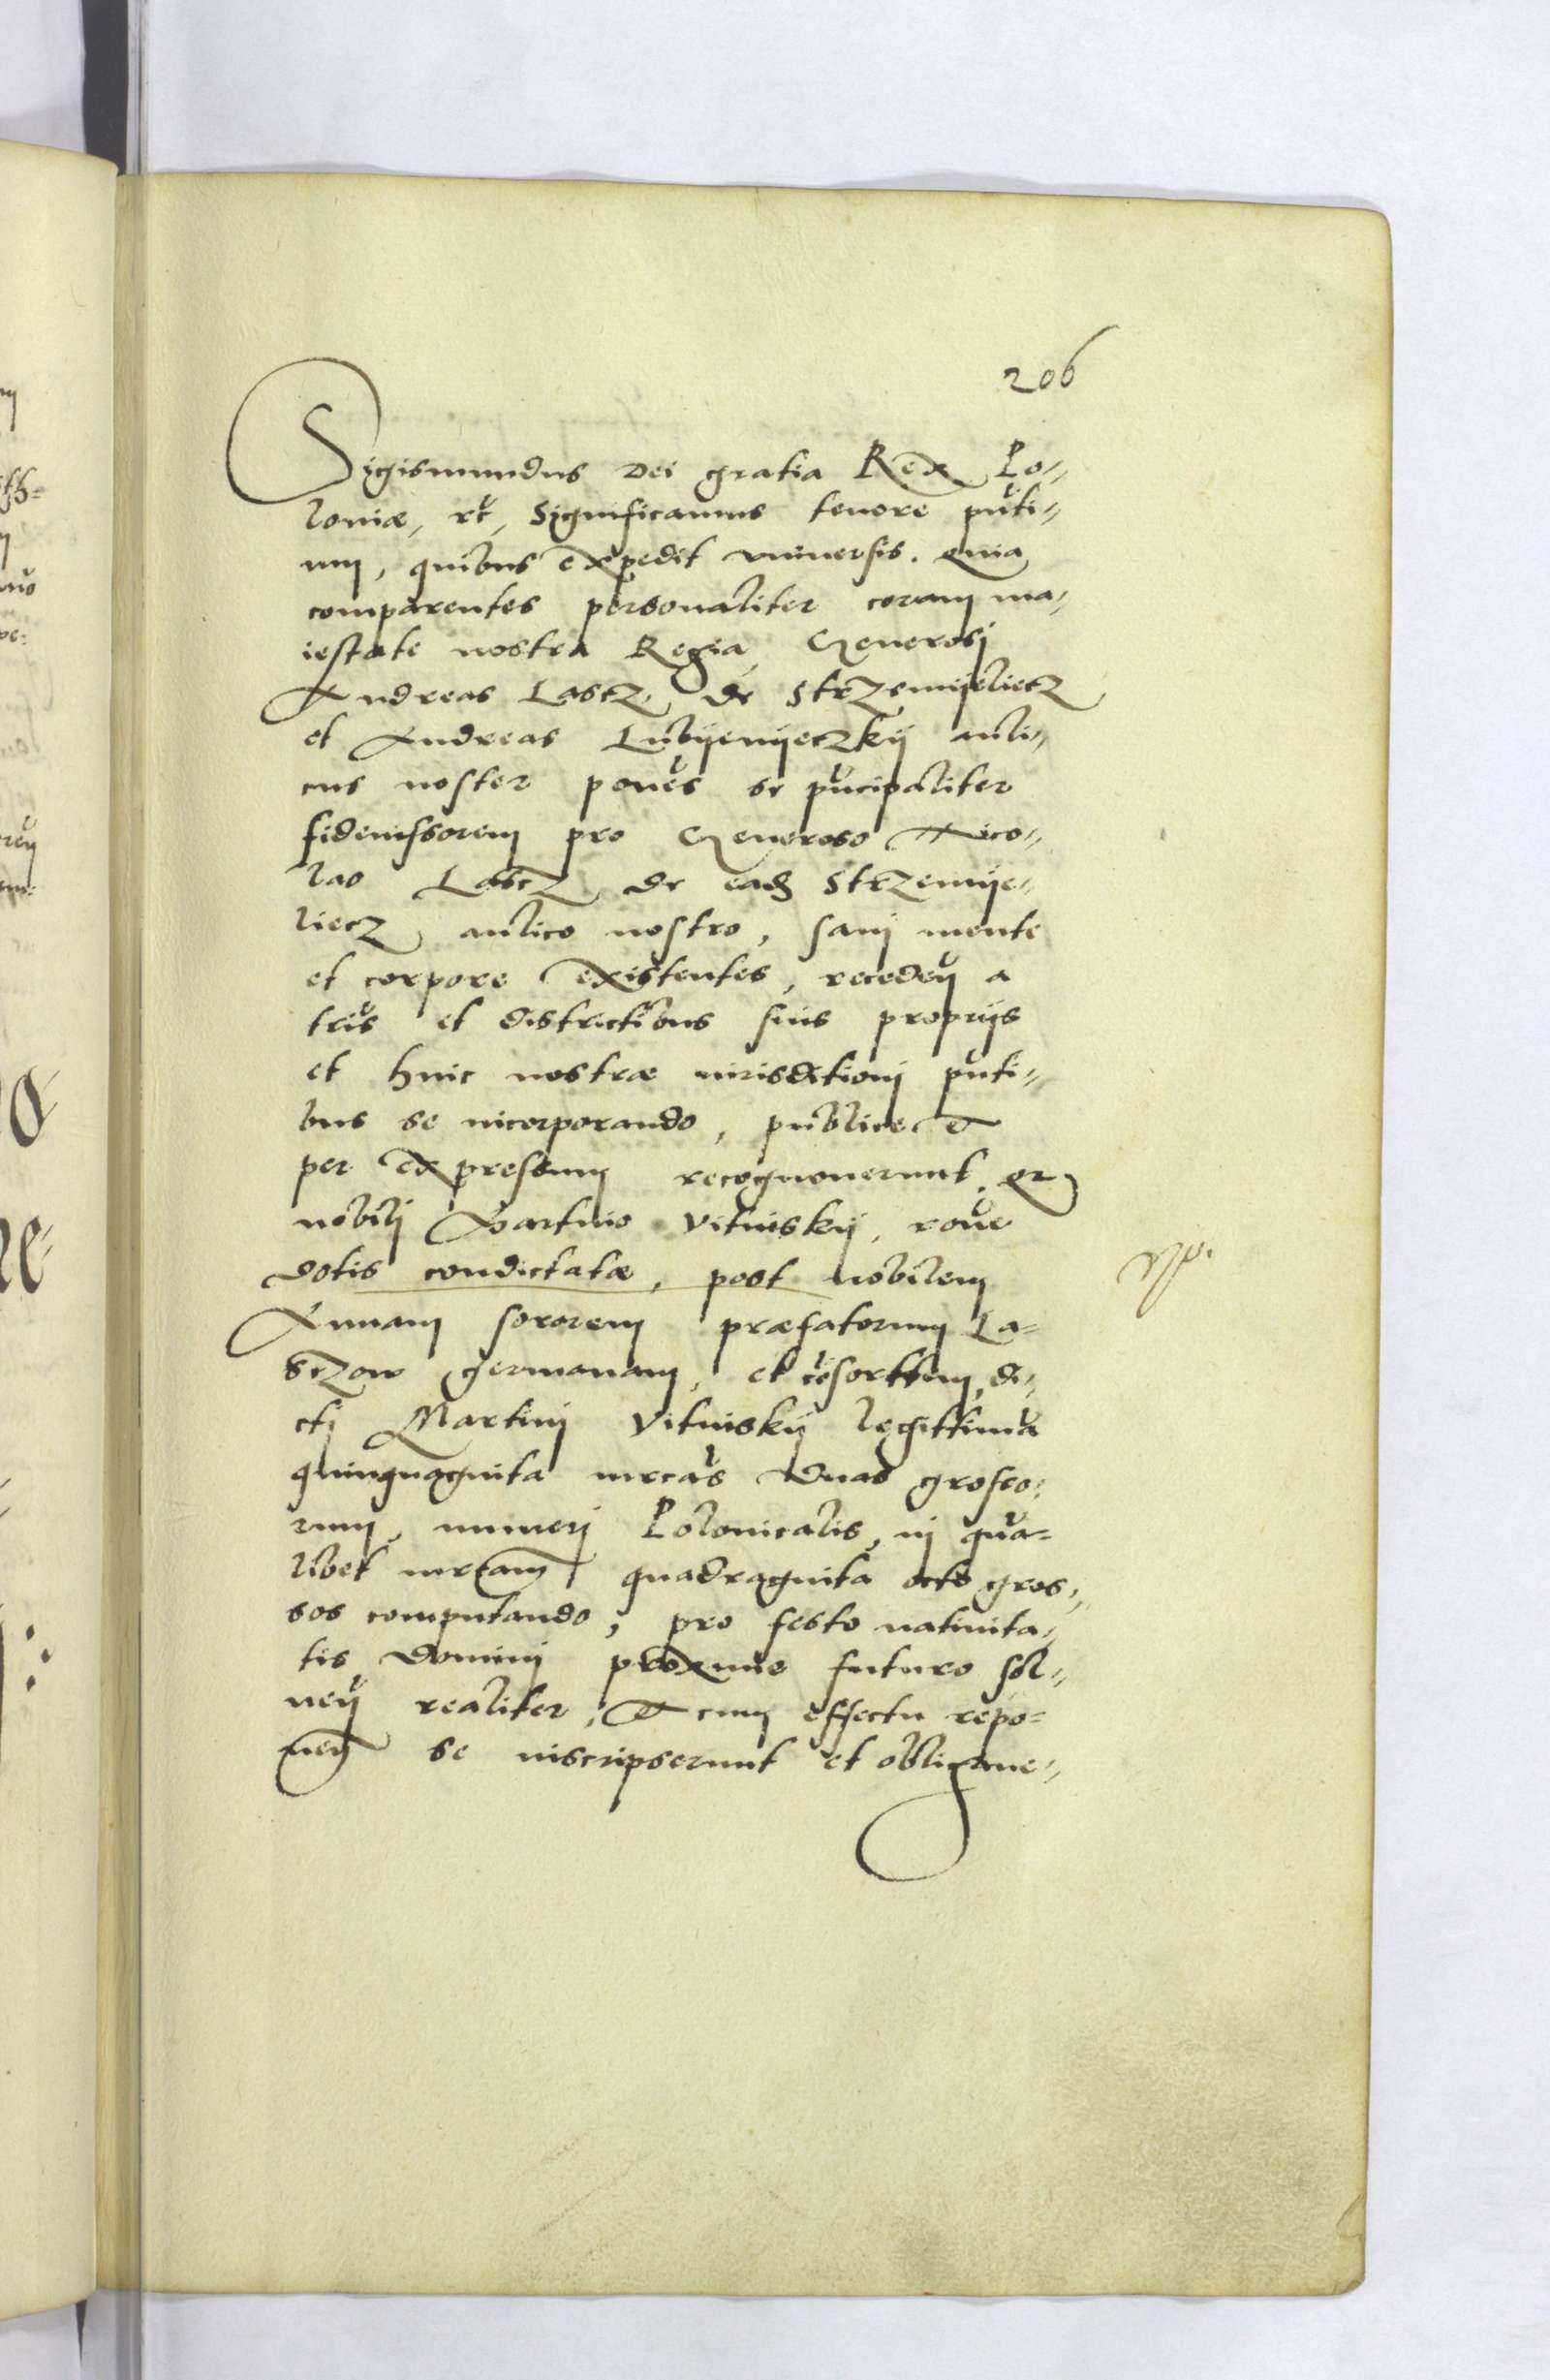 206
Sigismundus Dei gratia Rex Po-
loniæ, etc, Significamus tenore pnti-
um, quibus expedit vniuersis. Quia
comparentes personaliter coram ma-
iestate nostra Regia, Generosi
Andreas Lascz, de Strzemijeliecz
et Andreas Lubijenijeczkij auli-
cus noster ponēs se prīcipaliter
fideiussorem pro Generoso Nico-
lao Lascz de eadꝫ Strzemije-
liecz aulico nostro, sani mente
et corpore existentes, recedeñ a
tris et districtibus suis proprijs
et huic nostræ iurisditioni pnti-
bus se incorporando, publice et
per expressum recognouerunt. Qz
nobili Martino Vitinskij, roñe
dotis condictatæ, post nobilem
Annam sororem præfatorum La-
sczow germanam, et cōsorttem, di-
cti Martini Vitinskij legittimā
quinquaginta mrcas duas grosso-
rum, numeri Polonicalis, in qua-
libet mrcam quadraginta octo gros-
sos computando, pro festo natiuita-
tis Domini proxime futuro sol-
ueñ realiter, et cum effectu repo-
neñ se inscripserunt et obligaue-